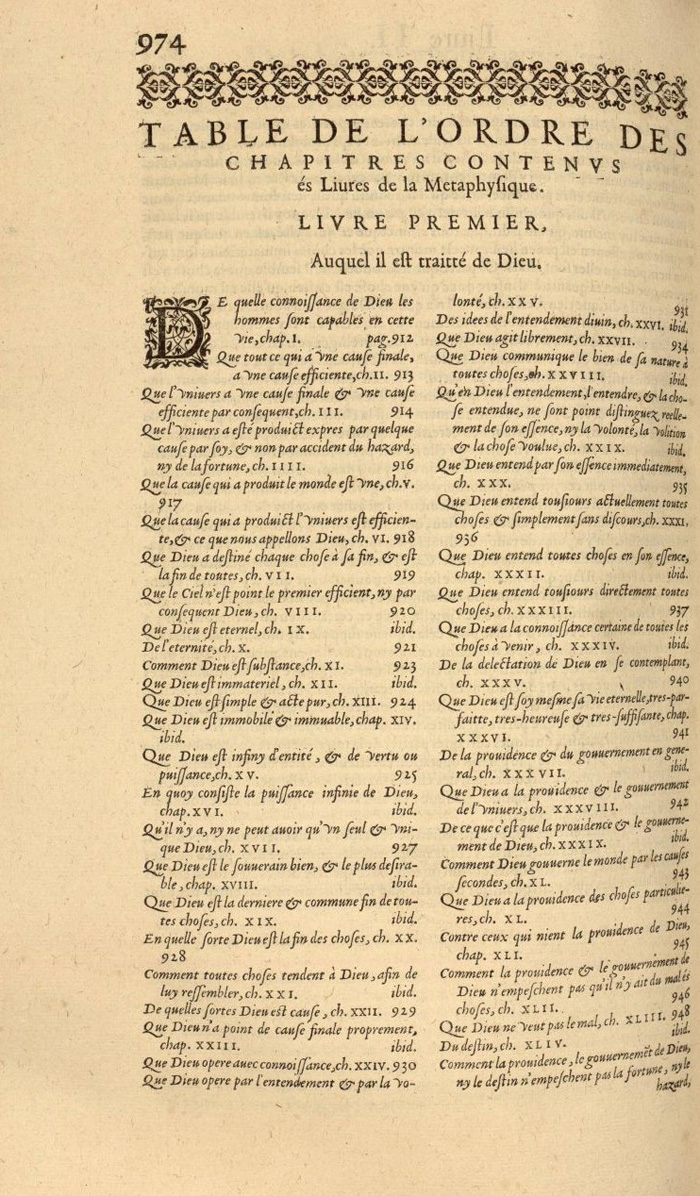 974
TABLE DE L'ORDRE DES
CHAPITRES CONTENVS
és Liures de la Metaphyſique.
LIVRE PREMIER,
Auquel il eſt traitté de Dieu.
DE quelle connoiſſance de Dieu les
hommes ſont capables en cette
vie, chap. I. pag. 912
Que tout ce qui a vne cauſe finale,
a vne cauſe efficiente, ch. II. 913
Que l'vniuers a vne cauſe finale & vne cauſe
efficiente par conſequent, ch. III. 914
Que l'vniuers a eſté produict expres par quelque
cauſe par ſoy, & non par accident du hazard,
ny de la fortune, ch. IIII. 916
Que la cauſe qui a produit le monde eſt vne, ch. v.
917
Que la cauſe qui a produict l'vniuers eſt efficien-
te, & ce que nous appellons Dieu, ch. VI. 918
Que Dieu a deſtiné chaque choſe à ſa fin, & eſt
la fin de toutes, ch. VII. 919
Que le Ciel n'eſt point le premier efficient, ny par
conſequent Dieu, ch. VIII. 920
Que Dieu eſt eternel, ch. IX. ibid.
De l'eternité, ch. X. 921
Comment Dieu eſt ſubſtance, ch. XI. 923
Que Dieu eſt immateriel, ch. XII. ibid.
Que Dieu eſt ſimple & acte pur, ch. XIII. 924
Que Dieu eſt immobile & immuable, chap. XIV.
ibid.
Que Dieu eſt infiny d'entité, & de vertu ou
puiſſance, ch. XV. 925
En quoy conſiſte la puiſſance infinie de Dieu,
chap. XVI. ibid.
Qu'il n'y a, ny ne peut auoir qu'vn ſeul & vni-
que Dieu, ch. XVII. 927
Que Dieu eſt le ſouuerain bien, & le plus deſira-
ble, chap. XVIII. ibid.
Que Dieu eſt la derniere & commune fin de tou-
tes choſes, ch. XIX. ibid.
En quelle ſorte Dieu eſt la fin des choſes, ch. XX.
928
Comment toutes choſes tendent à Dieu, afin de
luy reſſembler, ch. XXI. ibid.
De quelles ſortes Dieu eſt cauſe, ch. XXII. 929
Que Dieu n'a point de cauſe finale proprement,
chap. XXIII. ibid.
Que Dieu opere auec connoiſſance, ch. XXIV. 930
Que Dieu opere par l'entendement & par la vo-
lonté, ch. XXV. 931
Des idees de l'entendement diuin, ch. XXVI. ibid.
Que Dieu agit librement, ch. XXVII. 934
Que Dieu communique le bien de ſa nature à
toutes choſes, ch. XXVIII. ibid.
Qu'en Dieu l'entendement, l'entendre, & la cho-
ſe entendue, ne ſont point diſtinguez reelle-
ment de ſon eſſence, ny la volonté, la volition
& la choſe voulue, ch. XXIX. ibid.
Que Dieu entend par ſon eſſence immediatement,
ch. XXX. 935
Que Dieu entend touſiours actuellement toutes
choſes & ſimplement ſans diſcours, ch. XXXI.
936
Que Dieu entend toutes choſes en ſon eſſence,
chap. XXXII. ibid.
Que Dieu entend touſiours directement toutes
choſes, XXXIII. 937
Que Dieu a la connoiſſance certaine de toutes les
choſes à venir, ch. XXXIV. ibid.
De la delectation de Dieu en ſe contemplant,
ch. XXXV. 940
Que Dieu eſt ſoy meſme ſa vie eternelle, tres-par-
faitte, tres-heureuſe & tres-ſuffiſante, chap.
XXXVI. 941
De la prouidence & du gouuernement en gene-
ral, ch. XXXVII. ibid.
Que Dieu a la prouidence & le gouuernement
de l'vniuers, ch. XXXVIII. 942
De ce que c'eſt que la prouidence & le gouuerne-
ment de Dieu, ch. XXXIX. ibid.
Comment Dieu gouuerne le monde par les cauſes
ſecondes, ch. XL. 943
Que Dieu a la prouidence des choſes particulie-
res, ch. XL. 944
Contre ceux qui nient la prouidence de Dieu,
chap. XLI. 945
Comment la prouidence & le gouuernement de
Dieu n'empeſchent pas qu'il n'y ait du mal és
choſes, ch. XLII. 946
Que Dieu ne veut pas le mal, ch. XLIII. 948
Du deſtin, ch. XLIV. ibid.
Comment la prouidence, le gouuernemēt de Dieu,
ny le deſtin n'empeſchent pas la fortune, ny le
hazard,